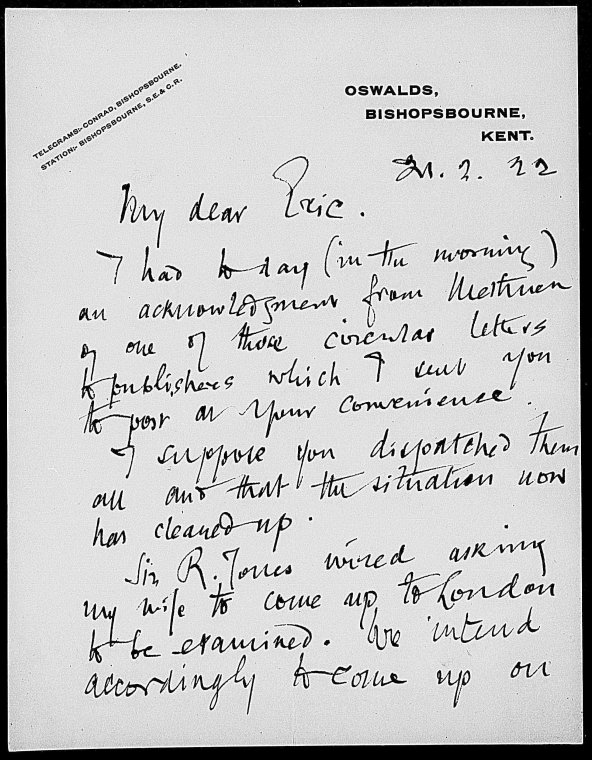 TELEGRAMS:- CONRAD, BISHOPSBOURNE.
STATION:- BISHOPSBOURNE, S.E. & C.R.
OSWALDS,
BISHOPSBOURNE,
KENT.
21. 2. 22
My dear Eric.
I had to day (in the morning)
an acknowledgment from Methuen
of one of those circular letters
to publishers which I sent you
to post at your convenience.
I suppose you dispatched them
all and that the situation now
has cleared up.
Sir R. Jones wired asking
my wife to come up to London
to be examined. We intend
accordingly to come up on